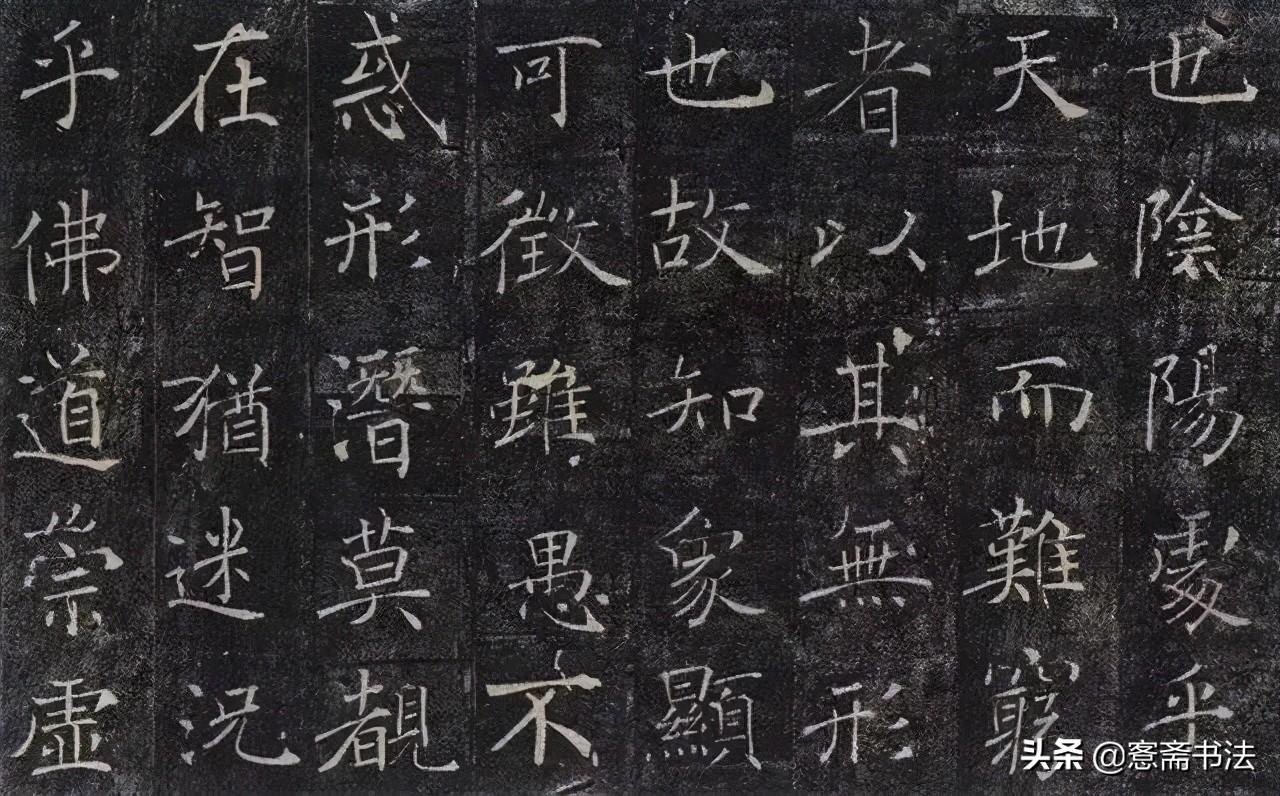 也陰陽處乎
天地而難窮
者以其無形
也故知象顯
可徵雖愚不
惑形潛莫覩
在智猶迷況
乎佛道崇虛
头条@窓斋书法